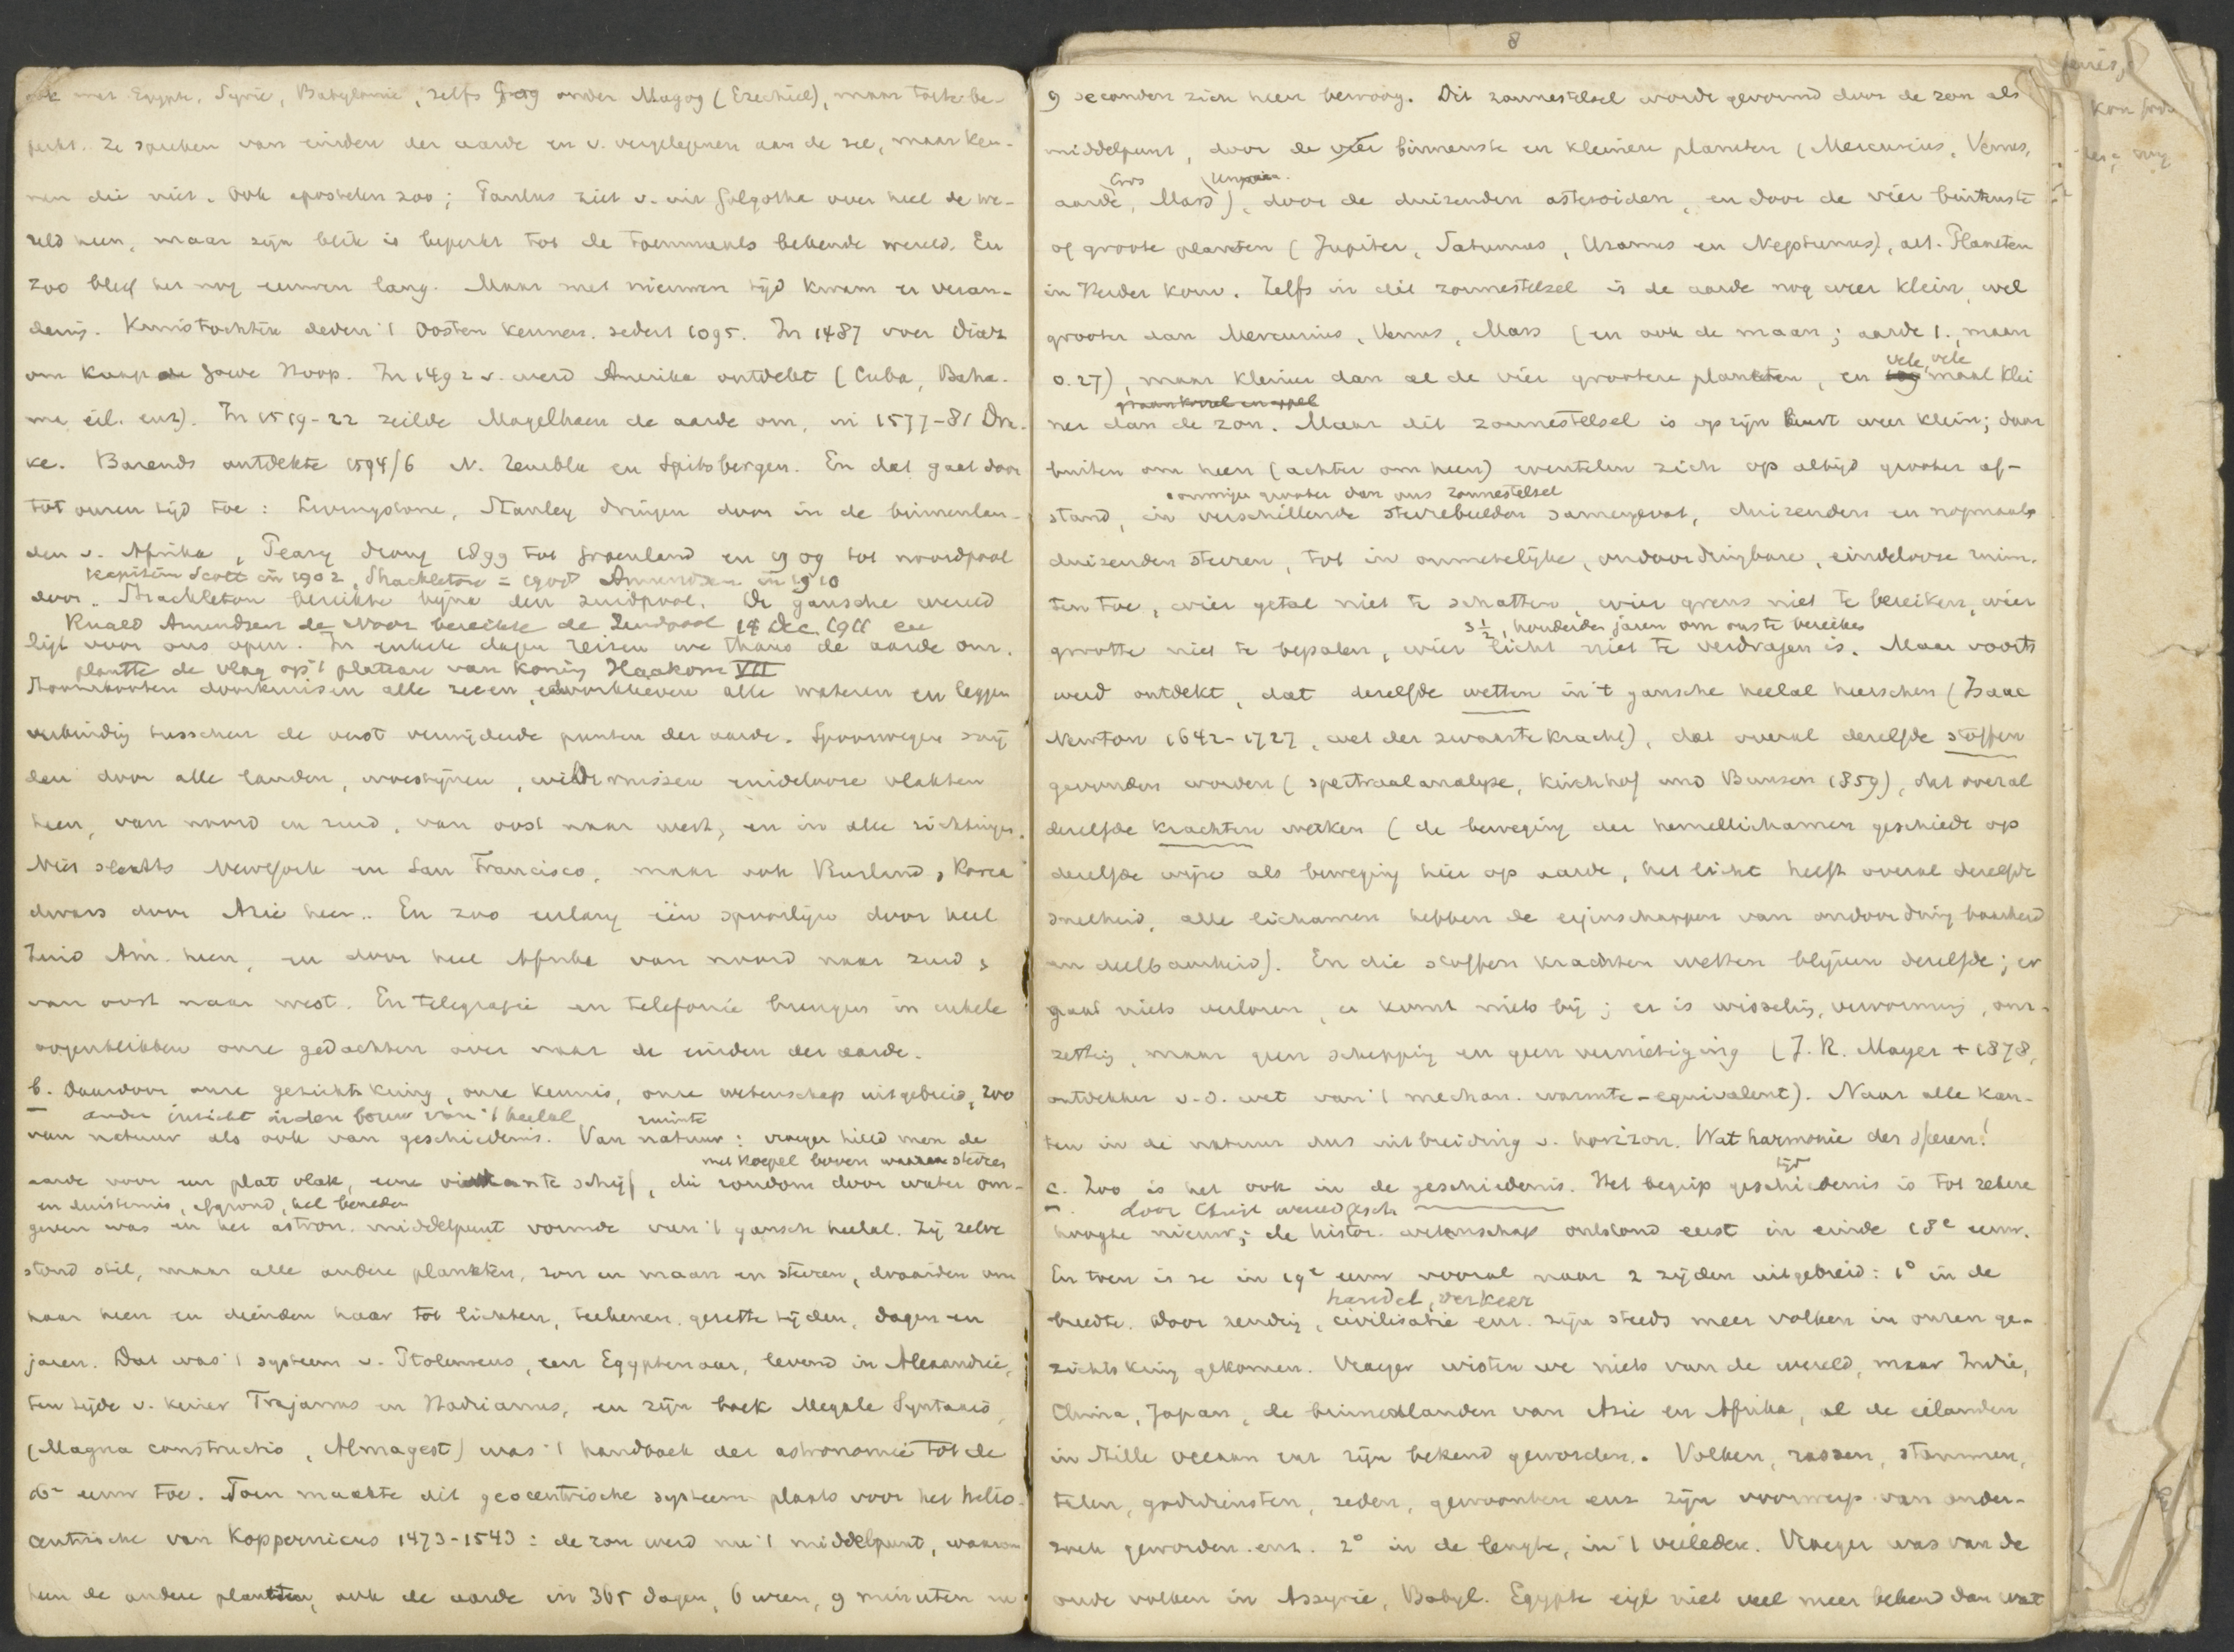 ook met Egypte, Syrië, Babylonië, zelfs Gog onder Magog (Ezechiel), maar toch be-
perkt. Ze spreken van einden der aarde en v. vergelegenen aan de zee, maar ken-
nen die niet. Ook apostelen zoo; Paulus ziet v. uit Golgotha over heel de we-
reld heen, maar zijn blik is beperkt tot de toenmaals bekende wereld. En
zoo bleef het nog eeuwen lang. Maar met nieuwen tijd kwam er veran-
dering. Kruistochten deden 't Oosten kennen. sedert 1095. In 1487 voer Diaz
om Kaap de Goede Hoop. In 1492 v. werd Amerika ontdekt (Cuba, Baha-
ma eil. enz). In 1519-22 zeilde Magelhaen de aarde om, in 1577-81 Dra-
ke. Barends ontdekte 1594/6 N. Zembla en Spitsbergen. En dat gaat door
tot onzen tijd toe: Livingstone, Stanley dringen door in de binnenlan-
den v. Afrika, Peary drong 1899 tot Groenland en 1909 tot noordpool
Kapitein Scott in 1902, Shackleton = 1908 Amundsen in 1910
door. Shackleton bereikte bijna den zuidpool. De gansche wereld
Roald Amundsen de Noor bereikte de Zuidpool 14 Dec. 1911 en
ligt voor ons open. In enkele dagen reizen we thans de aarde om.
plantte de vlag op 't plateau van Koning Haakon VII
Stoombooten doorkruisen alle zeeen, doorklieven alle wateren en leggen
verbinding tusschen de verst verwijderde punten der aarde. Spoorwegen snij
den door alle landen, woestijnen, wildernissen eindelooze vlakten
heen, van noord en zuid, van oost naar west, en in alle richtingen.
Niet slechts Newyork en San Francisco, maar ook Rusland, Korea
dwars door Azie heen.. En zoo eerlang één spoorlijn door heel
Zuid Am. heen, en door heel Afrika van noord naar zuid,
van oost naar west. En telegrafie en telefonie brengen in enkele
oogenblikken onze gedachten over naar de einden der aarde.
b. Daardoor onze gezichtskring, onze kennis, onze wetenschap uitgebreid, zoo
ander inzicht in den bouw van 't heelal ruimte
van natuur als ook van geschiedenis. Van natuur: vroeger hield men de
met koepel boven waaraan sterren
aarde voor een plat vlak, eene vierkante schijf, die rondom door water om-
en duisternis, afgrond, hel beneden
geven was en het astron. middelpunt vormde van 't gansch heelal. Zij zelve
stond stil, maar alle andere planeten, zon en maan en sterren, draaiden om
haar heen en dienden haar tot lichten, teekenen, gezette tijden, dagen en
jaren. Dat was 't systeem v. Ptolemeus, een Egyptenaar, levend in Alexandrië,
ten tijde v. keizer Trajanus en Hadrianus, en zijn boek Megale Syntaxis,
(Magna constructio, Almagest) was 't handboek der astronomie tot de
16e eeuw toe. Toen maakte dit geocentrische systeem plaats voor het helio-
centrische van Koppernicus 1473-1543: de zon werd nu 't middelpunt, waarom
heen de andere planeten, ook de aarde in 365 dagen, 6 uren, 9 minuten en
8
9 seconden zich heen beweeg. Dit zonnestelsel wordt gevormd door de zon als
middelpunt, door de vier binnenste en kleinere planeten (Mercurius, Venus,
Eros
aarde, Mars), door de duizenden asteroiden, en door de vier buitenste
of groote planeten (Jupiter, Saturnus, Uranus en Neptunus), art. Planeten
in Herder Konv. Zelfs in dit zonnestelsel is de aarde nog weer klein, wel
grooter dan Mercurius, Venus, Mars (en ook de maan; aarde 1., maan
vele, vele
0.27), maar kleiner dan al de vier grootere planeten, en maal klei
graankorrel en appel
ner dan de zon. Maar dit zonnestelsel is op zijn beurt weer klein; daar
buiten om heen (achter om heen) wentelen zich op altijd grooter af-
sommige grooter dan ons zonnestelsel
stand, in verschillende sterrebeelden samengevat, duizenden en nogmaals
duizenden sterren, tot in onmetelijke, ondoordringbare, eindelooze ruim-
ten toe, wier getal niet te schatten, wier grens niet te bereiken, wier
3½, honderden jaren om ons te bereiken
grootte niet te bepalen, wier licht niet te verdragen is. Maar voorts
werd ontdekt, dat dezelfde wetten in 't gansche heelal heerschen (Isaac
Newton 1642-1727, wet der zwaartekracht), dat overal dezelfde stoffen
gevonden worden (spectraalanalyse, Kirchhof und Bunsen 1859), dat overal
dezelfde krachten werken (de beweging der hemellichamen geschiedt op
dezelfde wijze als beweging hier op aarde, het licht heeft overal dezelfde
snelheid, alle lichamen hebben de eigenschappen van ondoordringbaarheid
en deelbaarheid). En die stoffen krachten wetten blijven dezelfde; er
gaat niets verloren, er komt niets bij; er is wisseling, vervorming, om-
zetting, maar geen schepping en geen vernietiging (J. R. Mayer + 1878,
ontdekker v.d. wet van 't mechan. warmte-equivalent). Naar alle kan-
ten in de natuur dus uitbreiding v. horizon. Wat harmonie der sferen!
tijd
c. Zoo is het ook in de geschiedenis. Het begrip geschiedenis is tot zekere
door Christ wereldgesch
hoogte nieuw; de histor. wetenschap ontstond eerst in einde 18e eeuw.
En toen is ze in 19e eeuw vooral naar 2 zijden uitgebreid: 1° in de
handel, verkeer
breedte. Door zending, civilisatie enz. zijn steeds meer volken in onzen ge-
zichtskring gekomen. Vroeger wisten we niets van de wereld, maar Indië,
China, Japan, de binnenlanden van Azie en Afrika, al de eilanden
in Stille oceaan enz zijn bekend geworden.. Volken, rassen, stammen,
talen, godsdiensten, zeden, gewoonten enz zijn voorwerp van onder-
zoek geworden. enz. 2° in de lengte, in 't verleden. Vroeger was van de
oude volken in Assyrië, Babyl. Egypte eigl niet veel meer bekend dan wat